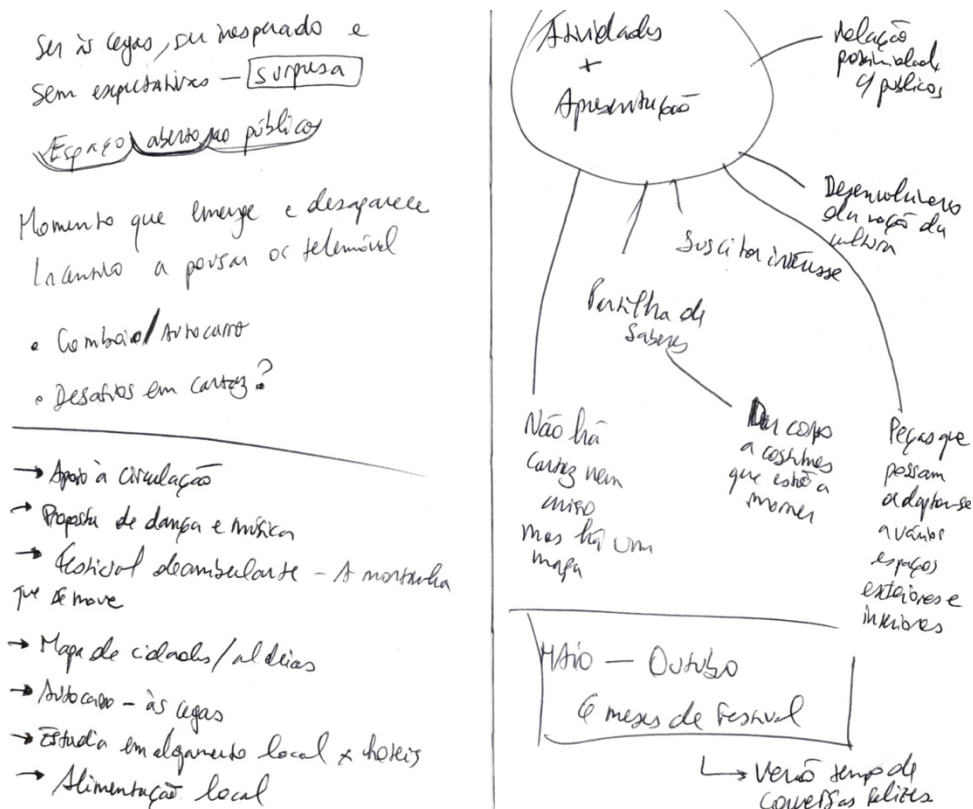 Ser às cegas, ser inesperado e
sem expectativas — surpresa
Espaço aberto ao público
Momento que emerge e desaparece
Incentivo a pousar o telemóvel
• Comboio/Autocarro
• Desafios em cartaz?
→ Apoio à circulação
→ Proposta de dança e música
→ Festival deambulante – A montanha
que se move
→ Mapa de cidades/aldeias
→ Autocarro – às cegas
→ Estadia em alojamento local x hotéis
→ Alimentação local
Atividades
+
Apresentação
relação
proximidade
c/ públicos
Desenvolvimento
da noção da
cultura
Suscitar interesse
Partilha de
saberes
Dar corpo
a costumes
que estão a
morrer
Não há
cartaz nem
aviso
mas há um
mapa
Peças que
possam
adaptar-se
a vários
espaços
exteriores e
interiores
Maio — Outubro
6 meses de Festival
↳ Verão tempo de
conversas felizes